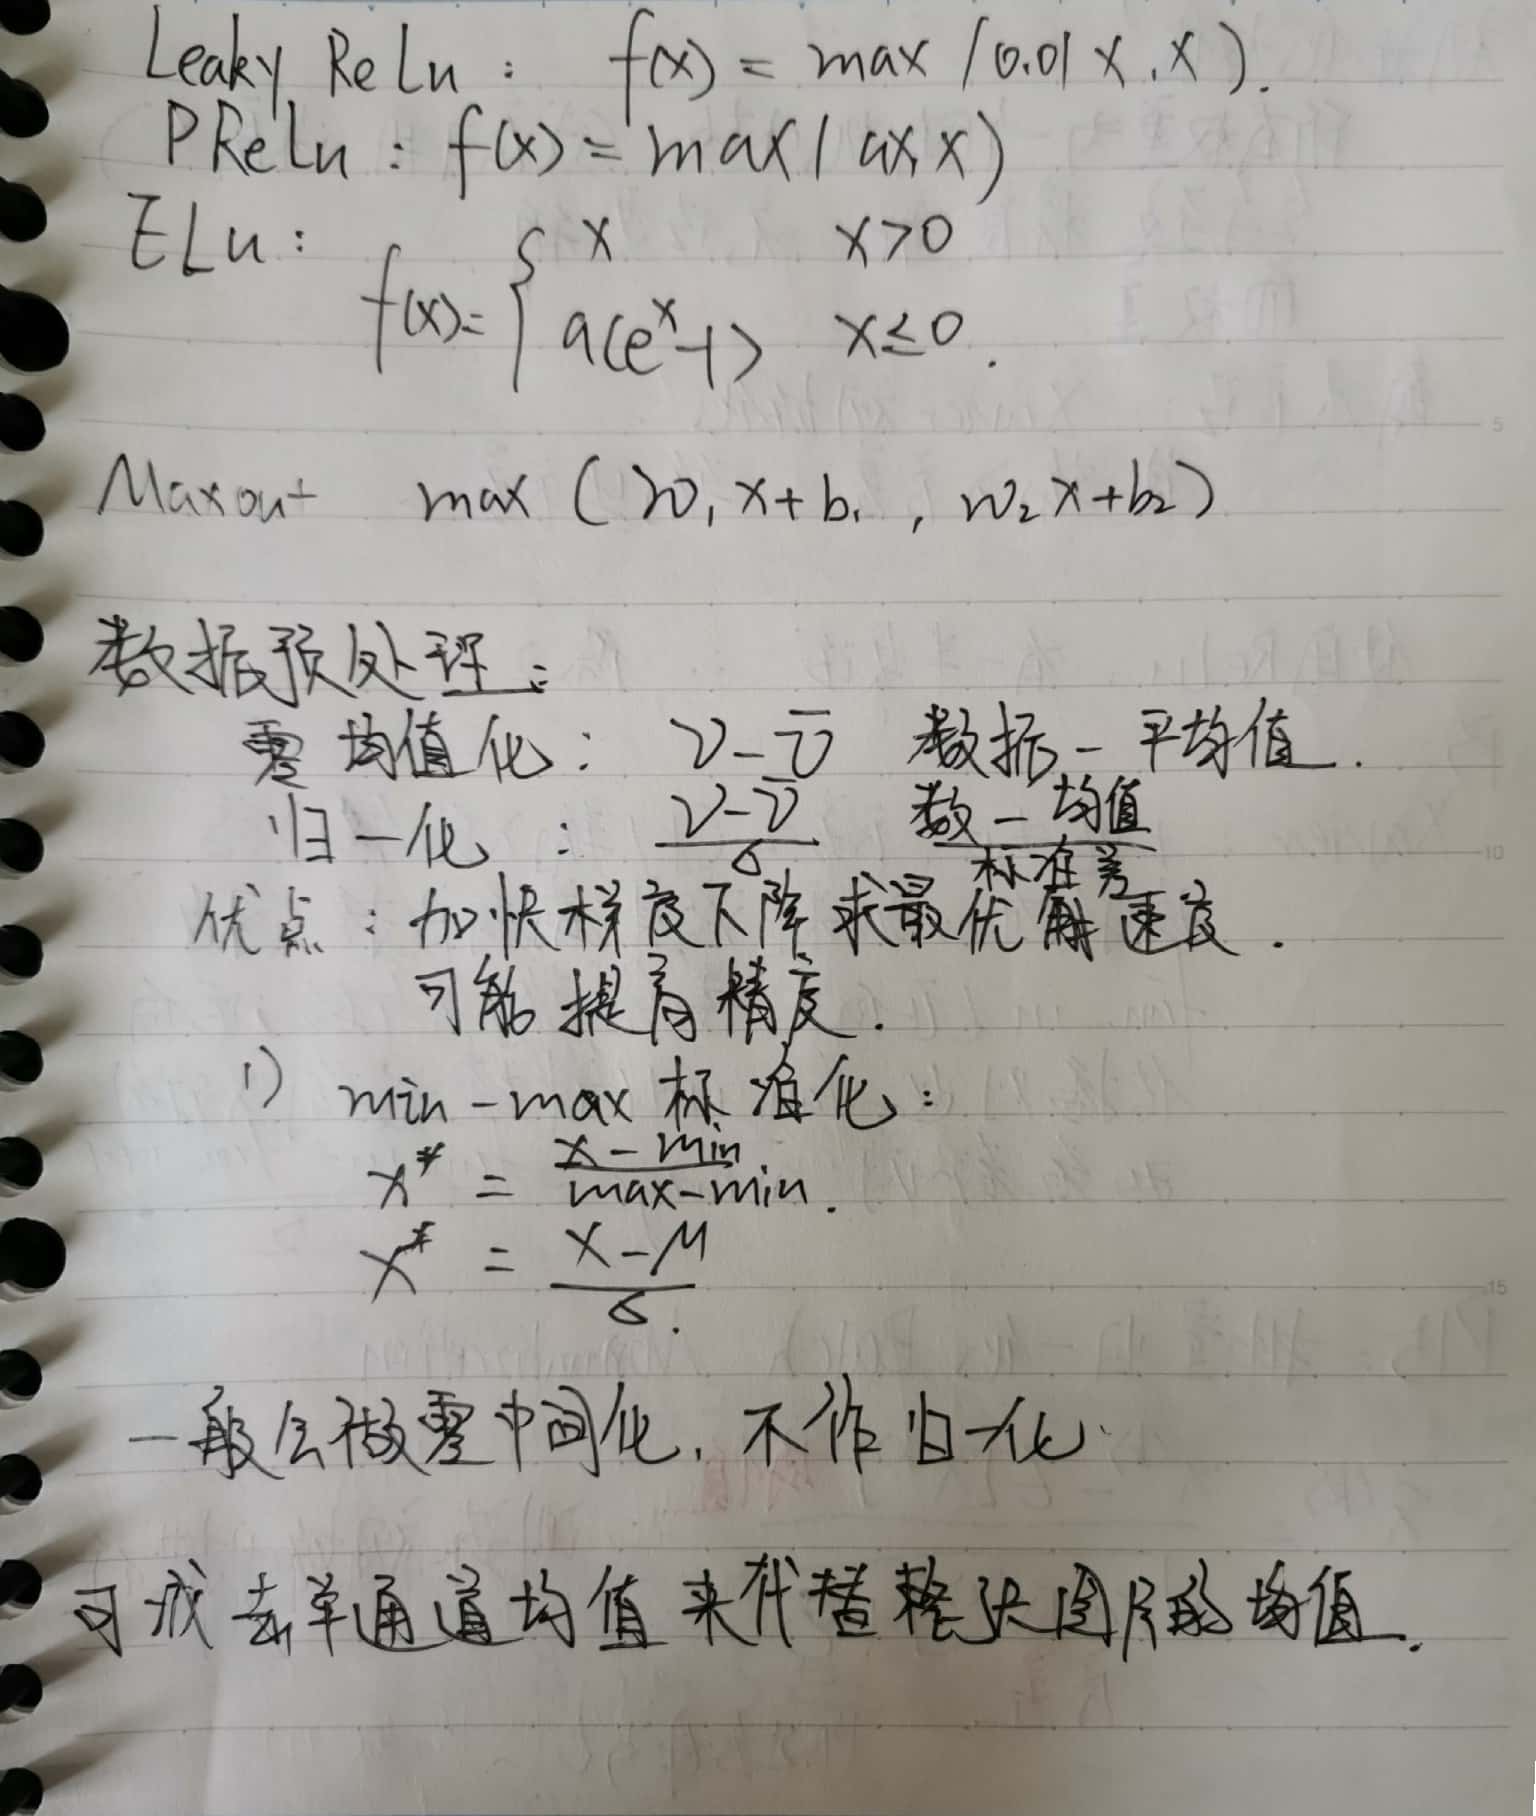 Leaky ReLu : f(x) = max (0.01x, x).
PReLu : f(x) = max(ax, x)
ELu : f(x) = { x x>0
a(e^x-1) x≤0.
Maxout max (w₁x+b₁, w₂x+b₂)
数据预处理:
零均值化: v-v̄ 数据-平均值.
归一化: (v-v̄)/σ (数-均值)/标准差
优点: 加快梯度下降求最优解速度.
可能提高精度.
1) min-max 标准化:
x* = (x-min)/(max-min).
x* = (x-μ)/σ.
一般会做零中间化, 不作归一化.
可求去单通道均值来代替整张图片的均值.